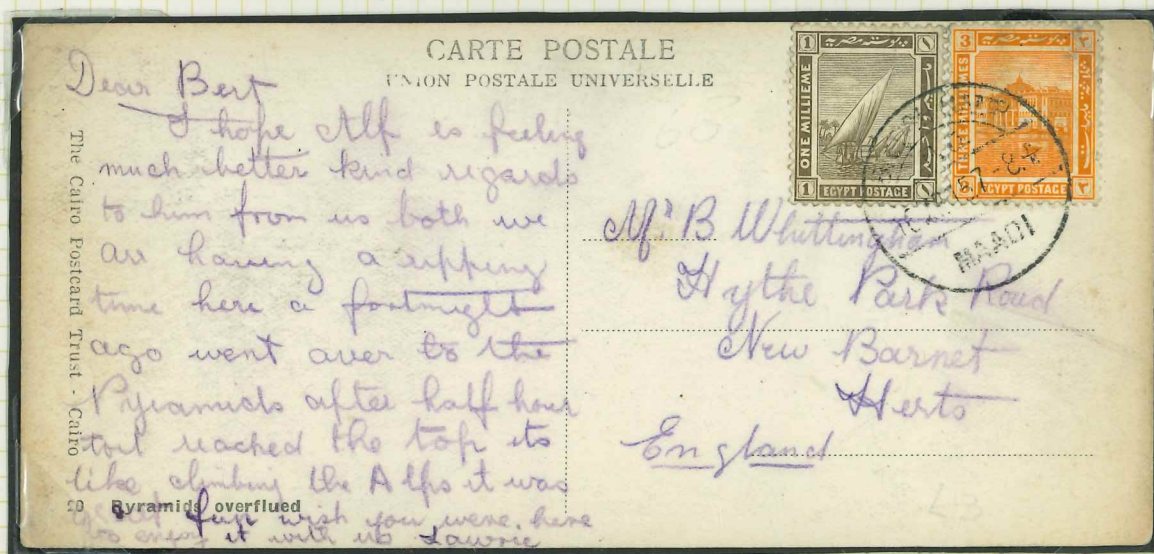 CARTE POSTALE
UNION POSTALE UNIVERSELLE
Dear Bert
I hope Alf is feeling
much better kind regards
to him from us both we
are having a ripping
time here a fortnight
ago went over to the
Pyramids after half hour
toil reached the top its
like climbing the Alps it was
great fun wish you were here
to enjoy it with us Lawrie
The Cairo Postcard Trust - Cairo
20 Pyramids overflued
Mr B Whittingham
Hythe Park Road
New Barnet
Herts
England
1 بوستة مصرية ١
ONE MILLIEME
1 EGYPT POSTAGE ١
3 بوستة مصرية ٣
THREE MILLIEMES
3 EGYPT POSTAGE ٣
MAADI